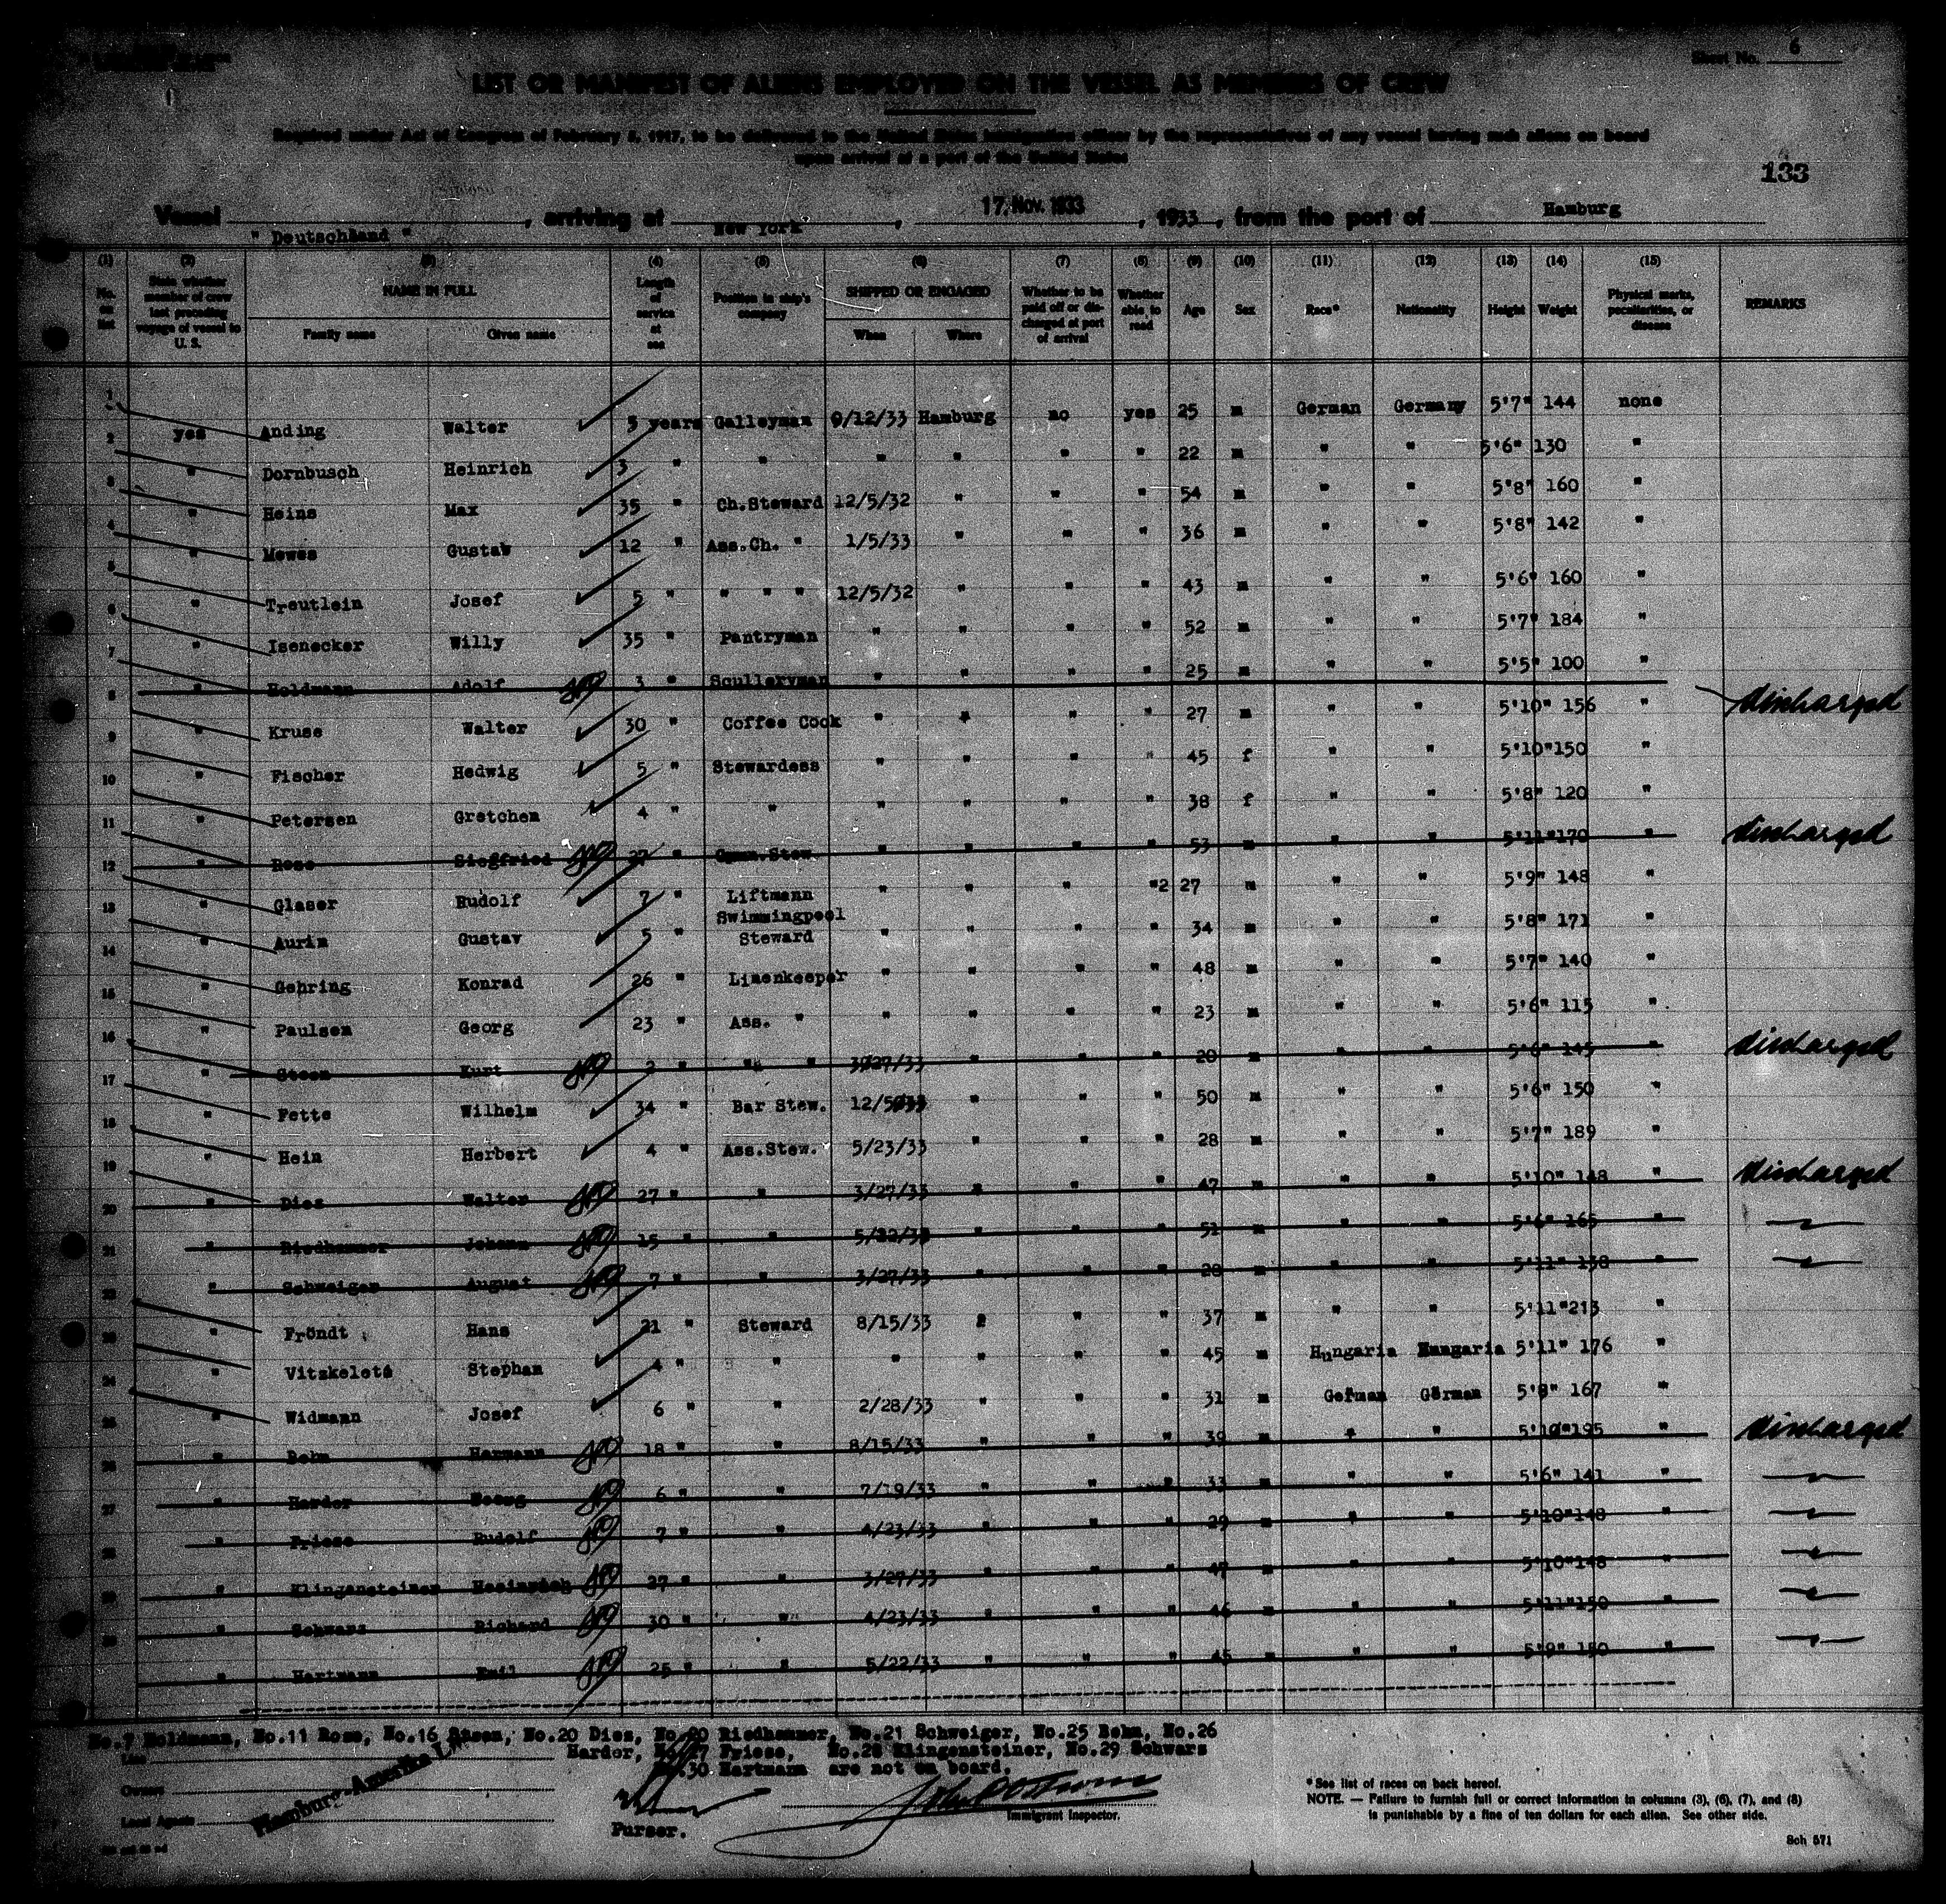 Sheet No. 6
LIST OR MANIFEST OF ALIENS EMPLOYED ON THE VESSEL AS MEMBERS OF CREW
Required under Act of Congress of February 5, 1917, to be delivered to the United States immigration officer by the representatives of any vessel having such aliens on board
upon arrival at a port of the United States
133
Vessel " Deutschland ", arriving at New York, 17. Nov. 1933, 1933, from the port of Hamburg
(1) (2) (3) (4) (5) (6) (7) (8) (9) (10) (11) (12) (13) (14) (15)
No. on list State whether member of crew last preceding voyage of vessel to U. S. NAME IN FULL Family name Given name Length of service at sea Position in ship's company SHIPPED OR ENGAGED When Where Whether to be paid off or discharged at port of arrival Whether able to read Age Sex Race* Nationality Height Weight Physical marks, peculiarities, or disease REMARKS
1 yes Anding Walter 5 years Galleyman 9/12/33 Hamburg no yes 25 m German Germany 5'7" 144 none
2 " Dornbusch Heinrich 3 " " " " " " 22 m " " 5'6" 130 "
3 " Heins Max 35 " Ch.Steward 12/5/32 " " " 54 m " " 5'8" 160 "
4 " Mewes Gustav 12 " Ass.Ch. " 1/5/33 " " " 36 m " " 5'8" 142 "
5 " Treutlein Josef 5 " " " " 12/5/32 " " " 43 m " " 5'6" 160 "
6 " Isenecker Willy 35 " Pantryman " " " " 52 m " " 5'7" 184 "
7 " Holdmann Adolf 3 " Sculleryman " " " " 25 m " " 5'5" 100 " discharged
8 " Kruse Walter 30 " Coffee Cook " " " " 27 m " " 5'10" 156 "
9 " Fischer Hedwig 5 " Stewardess " " " " 45 f " " 5'10" 150 "
10 " Petersen Gretchen 4 " " " " " " 38 f " " 5'8" 120 "
11 " Rose Siegfried 27 " Gymn.Stew. " " " " 53 m " " 5'11" 170 " discharged
12 " Glaser Rudolf 7 " Liftmann " " " "2 27 m " " 5'9" 148 "
13 " Aurin Gustav 5 " Swimmingpool Steward " " " " 34 m " " 5'8" 171 "
14 " Gehring Konrad 26 " Linenkeeper " " " " 48 m " " 5'7" 140 "
15 " Paulsen Georg 23 " Ass. " " " " " 23 m " " 5'6" 115 "
16 " Steen Kurt 2 " " " 3/27/33 " " " 20 m " " 5'6" 145 " discharged
17 " Fette Wilhelm 34 " Bar Stew. 12/5/33 " " " 50 m " " 5'6" 150 "
18 " Hein Herbert 4 " Ass.Stew. 5/23/33 " " " 28 m " " 5'7" 189 "
19 " Dies Walter 27 " " 3/27/33 " " " 47 m " " 5'10" 148 " discharged
20 " Riedhammer Johann 15 " " 5/22/33 " " " 51 m " " 5'6" 165 "
21 " Schweiger August 7 " " 3/27/33 " " " 28 m " " 5'11" 138 "
22 " Fröndt Hans 21 " Steward 8/15/33 " " " 37 m " " 5'11" 213 "
23 " Vitzkeleté Stephan 4 " " " " " " 45 m Hungaria Hungaria 5'11" 176 "
24 " Widmann Josef 6 " " 2/28/33 " " " 31 m German German 5'8" 167 "
25 " Behm Hermann 18 " " 8/15/33 " " " 39 m " " 5'10" 195 " discharged
26 " Harder Georg 6 " " 7/19/33 " " " 33 m " " 5'6" 141 "
27 " Friese Rudolf 7 " " 4/23/33 " " " 29 m " " 5'10" 148 "
28 " Klingensteiner Heinrich 27 " " 3/27/33 " " " 47 m " " 5'10" 148 "
29 " Schwarz Richard 30 " " 4/23/33 " " " 46 m " " 5'11" 150 "
30 " Hartmann Emil 25 " " 5/22/33 " " " 45 m " " 5'9" 150 "
No.7 Holdmann, No.11 Rose, No.16 Steen, No.20 Dies, No.20 Riedhammer, No.21 Schweiger, No.25 Behm, No.26
Harder, No.27 Friese, No.28 Klingensteiner, No.29 Schwarz
No.30 Hartmann are not on board.
Line
Owners
Local Agents
Hamburg-Amerika
Purser.
Immigrant Inspector.
*See list of races on back hereof.
NOTE. — Failure to furnish full or correct information in columns (3), (6), (7), and (8)
is punishable by a fine of ten dollars for each alien. See other side.
Sch 571